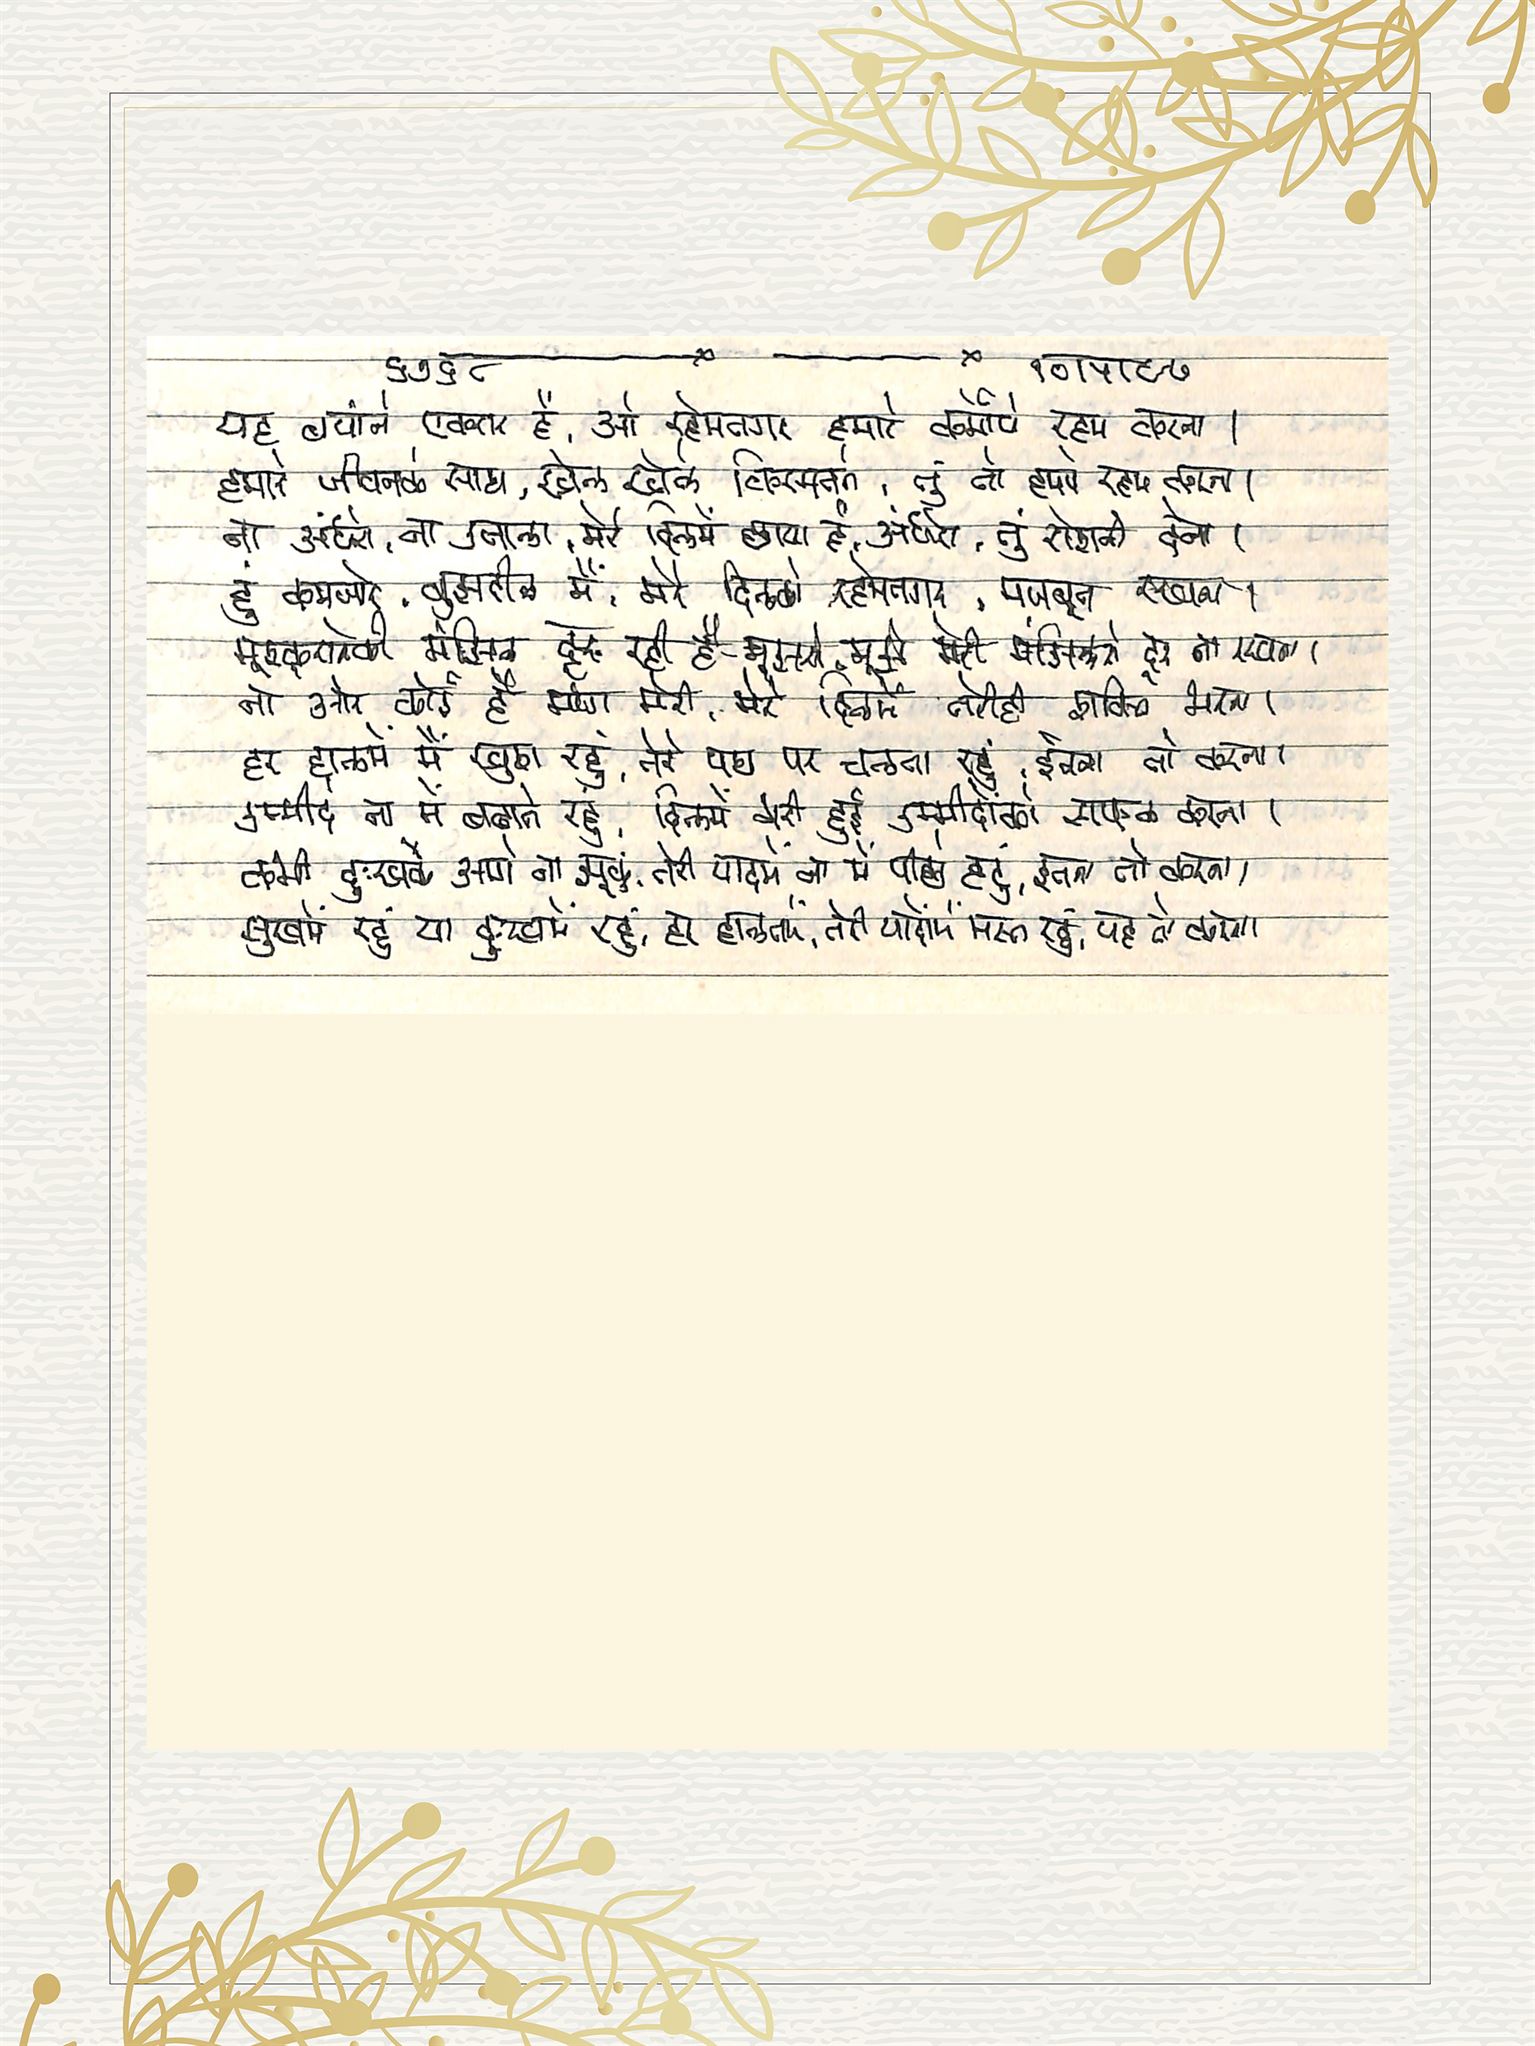 ६७६८ १०।५।८७
यह बयांने एकरार है, ओ रहेमनगर हमारे कर्मोपे रहम करना ।
हमारे जीवनके साथ, खेल खेले किस्मतने, तुं तो हमपे रहम करना ।
ना अंधेरा, ना उजाला, मेरे दिलमें छाया है, अंधेरा, तुं रोशनी देना ।
हुं कमजोर, बुझदील मैं, मेरे दिलको रहेमनगर, मजबूत रखना ।
मुस्कुरानेकी मंझिल दूर रही है मुझसे, मुझे मेरी मंझिलसे दूर ना रखना ।
ना और कोई है मंशा मेरी, मेरे दिलमें तेरीही भक्ति भरना ।
हर हालमें मैं खुश रहुं, तेरे पथ पर चलता रहुं, ईतना तो करना ।
उम्मीदे ना में बढाते रहुं, दिलमें भरी हुई उम्मीदोंको सफल करना ।
कभी दुःखके आगे ना झूकुं, तेरी यादमें ना में पीछे हटुं, इतना तो करना ।
सुखमें रहुं या दुःखमें रहुं, हर हालतमें, तेरी यादोंमें मस्त रहुं, यह तो करना ।